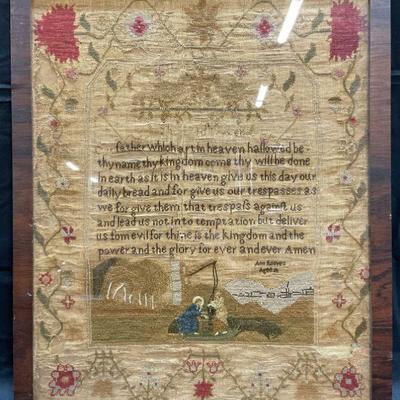 father which art in heaven hallowed be
thy name thy kingdom come thy will be done
in earth as it is in heaven give us this day our
daily bread and for give us our trespasses as
we for give them that trespaſs against us
and lead us not into temptation but deliver
us from evil for thine is the kingdom and the
power and the glory for ever and ever Amen
Ann
Aged